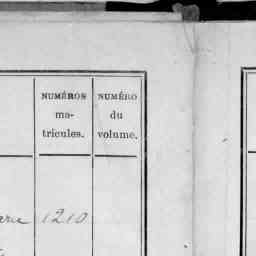 NUMÉROS
ma-
tricules.
NUMÉRO
du
volume.
1210